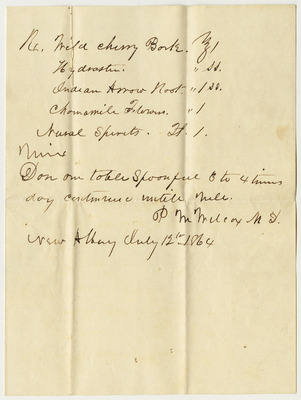 Rx. Wild cherry Bark. ʒ1
Hydrastin. " ss.
Indian Arrow Root. " 1 ss.
Chamomile Flowers. " 1
Spirits. 1.
Mix
Dose one table Spoonful 3 to 4 times
day continue untill well.
P M Wilcox M D.
New Albany July 12th 1864